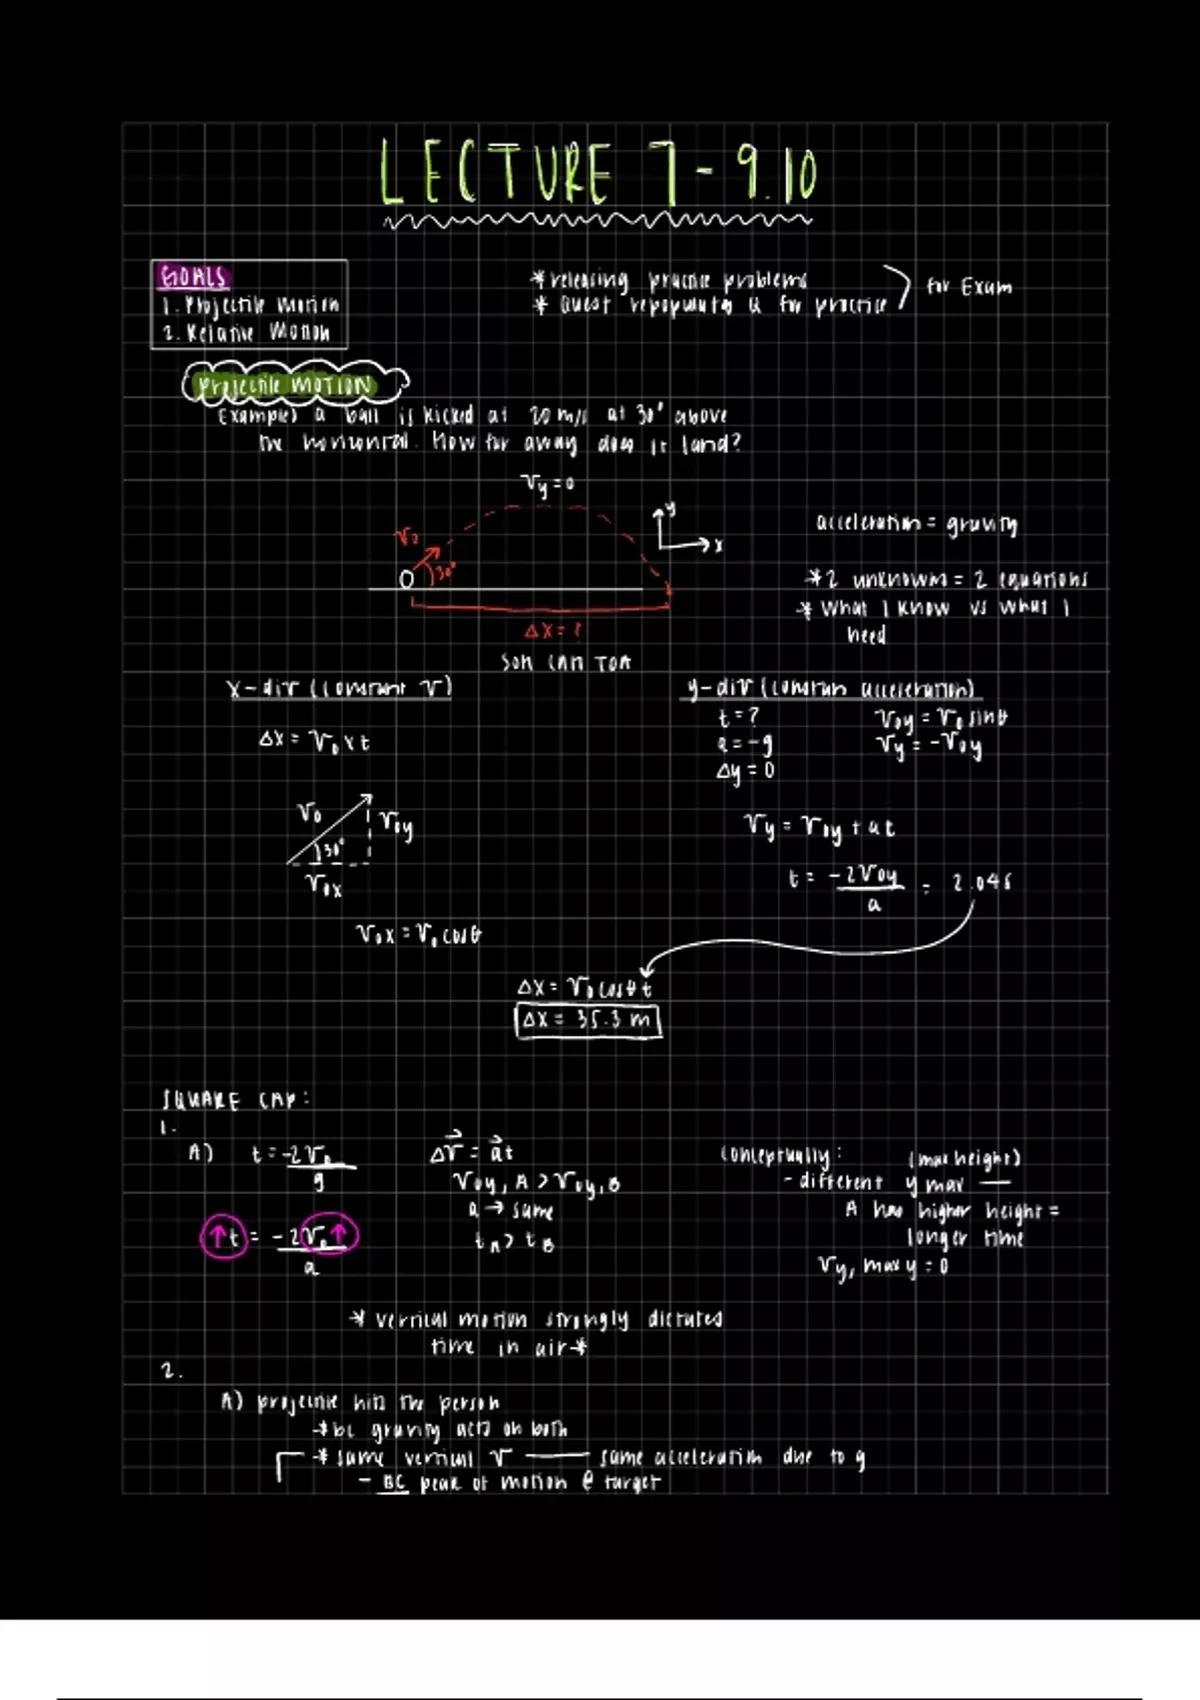 LECTURE 7 - 9.10
GOALS
1. Projectile Motion
2. Relative Motion
* releasing practice problems
* Quest repopulates Q for practice
for Exam
Projectile MOTION
Example) a ball is kicked at 20 m/s at 30° above
the horizontal. How far away does it land?
Vy = 0
V₀
30°
y
x
Δx = ?
acceleration = gravity
* 2 unknowns = 2 equations
* What I know vs what I
need
SOH CAH TOA
x-dir (constant V)
Δx = V₀xt
V₀
V₀y
30°
V₀x
V₀x = V₀ cosθ
y-dir (constant acceleration)
t = ?
a = -g
Δy = 0
V₀y = V₀ sinθ
Vy = -V₀y
Vy = V₀y + at
t = -2V₀y / a = 2.04s
Δx = V₀ cosθ t
Δx = 35.3 m
SQUARE CAP:
1.
A) t = -2V₀ / g
↑t = -2V₀↑ / a
ΔV⃗ = a⃗t
V₀y, A > V₀y, B
a → same
tA > tB
conceptually:
(max height)
- different y max
A has higher height =
longer time
Vy, max y = 0
* vertical motion strongly dictates
time in air *
2.
A) projectile hits the person
* bc gravity acts on both
* same vertical V — same acceleration due to g
- BC peak of motion @ target